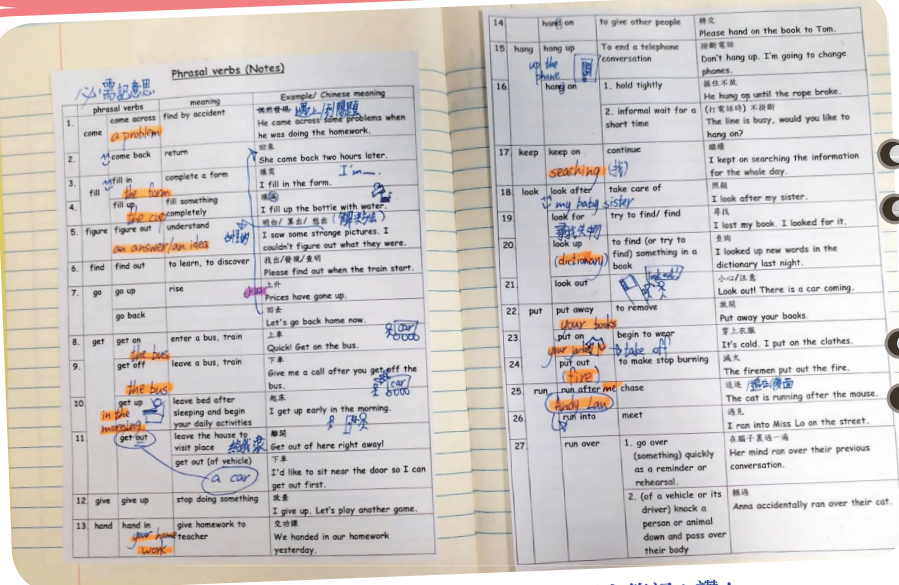 Phrasal verbs (Notes)
必需記意思
phrasal verbs meaning Example/ Chinese meaning
1. come come across find by accident 偶然發現 遇上/到問題
a problem
He came across some problems when
he was doing the homework.
2. come back return 回來
She came back two hours later.
3. fill fill in complete a form 填寫 I'm
the form
I fill in the form.
4. fill up fill something
completely
the cup
I fill up the bottle with water.
5. figure figure out understand 明白/算出/想出
an answer/an idea
I saw some strange pictures. I
couldn't figure out what they were.
6. find find out to learn, to discover 找出/發現/查明
Please find out when the train start.
7. go go up rise 上升
Prices have gone up.
go back 回去
Let's go back home now.
8. get get on enter a bus, train 上車
the bus
Quick! Get on the bus. car
9. get off leave a bus, train 下車
the bus
Give me a call after you get off the
bus. car
10. get up leave bed after
sleeping and begin
your daily activities
in the
morning
起床
I get up early in the morning.
11. get out leave the house to
visit place
離開
Get out of here right away!
get out (of vehicle) 下車
a car
I'd like to sit near the door so I can
get out first.
12 give give up stop doing something 放棄
I give up. Let's play another game.
13. hand hand in give homework to
teacher
your home
work
交功課
We handed in our homework
yesterday.
14 hand on to give other people 轉交
Please hand on the book to Tom.
15 hang hang up To end a telephone
conversation
up the
phone
掛斷電話
Don't hang up. I'm going to change
phones.
16 hang on 1. hold tightly 抓住不放
He hung on until the rope broke.
2. informal wait for a
short time
(打電話時) 不掛斷
The line is busy, would you like to
hang on?
17 keep keep on continue 繼續
seaching
I kept on searching the information
for the whole day.
18 look look after take care of 照顧
my baby sister
I look after my sister.
19 look for try to find/ find 尋找
尋找失物
I lost my book. I looked for it.
20 look up to find (or try to
find) something in a
book
(dictionary)
查詢
I looked up new words in the
dictionary last night.
21 look out 小心/注意
Look out! There is a car coming.
22 put put away to remove 放開
your books
Put away your books.
23 put on begin to wear 穿上衣服
take off
It's cold. I put on the clothes.
24 put out to make stop burning 滅火
(fire)
The firemen put out the fire.
25 run run after me chase 追逐
Andy Lau
The cat is running after the mouse.
26 run into meet 遇見
I ran into Miss Lo on the street.
27. run over 1. go over
(something) quickly
as a reminder or
rehearsal.
在腦子裏過一過
Her mind ran over their previous
conversation.
2. (of a vehicle or its
driver) knock a
person or animal
down and pass over
their body
輾過
Anna accidentally ran over their cat.